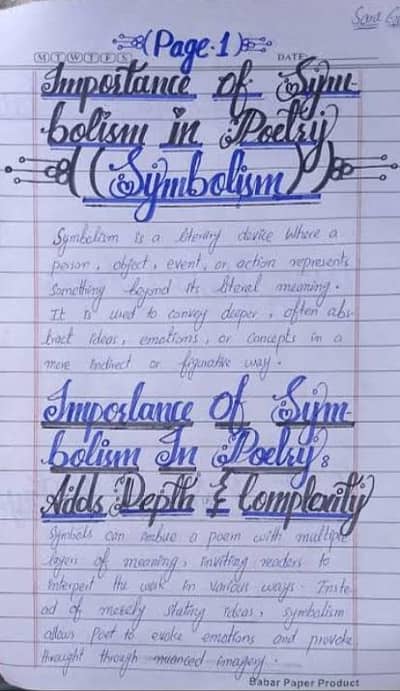 Sana
(Page·1)
M T W T F S
DATE:
Importance of Sym-
bolism in Poetry
(Symbolism)
Symbolism is a literary device where a
person, object, event, or action represents
something beyond its literal meaning.
It is used to convey deeper, often abs-
tract ideas, emotions, or concepts in a
more indirect or figurative way.
Importance Of Sym-
bolism In Poetry:
Adds Depth & Complexity
Symbols can imbue a poem with multiple
layers of meaning, inviting readers to
interpert the work in various ways. Inste-
ad of merely stating ideas, symbolism
allows Poet to evoke emotions and provoke
thraught through nuanced imagery.
Babar Paper Product